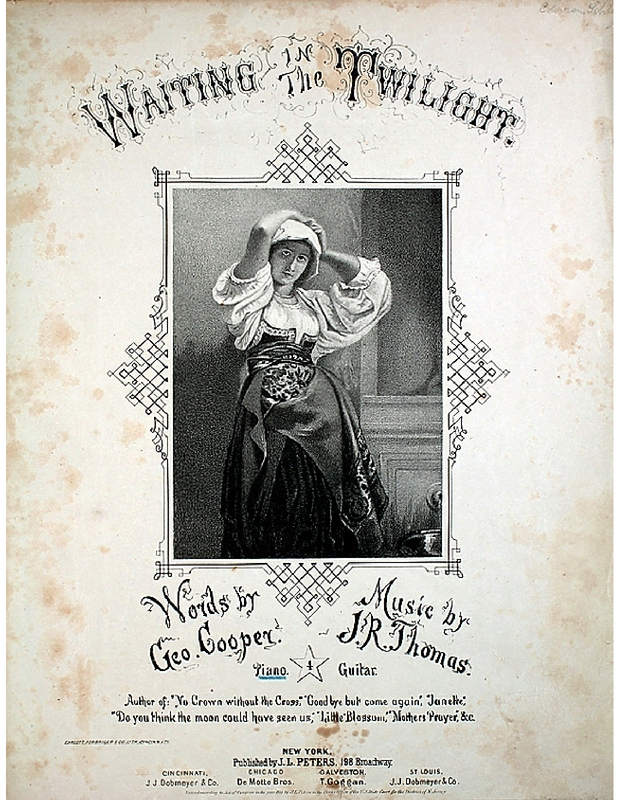 WAITING IN The TWILIGHT.
Words by
Geo. Cooper.
Music by
J.R. Thomas.
Piano. 4 Guitar.
Author of: "No Crown without the Cross," "Good bye but come again", "Janette,"
"Do you think the moon could have seen us," "Little Blossom," "Mothers' Prayer," &c.
NEW YORK.
Published by J. L. PETERS, 198 Broadway.
CINCINNATI, CHICAGO GALVESTON, ST LOUIS,
J.J. Dobmeyer & Co. De Motte Bros. T. Goggan. J.J. Dobmeyer & Co.